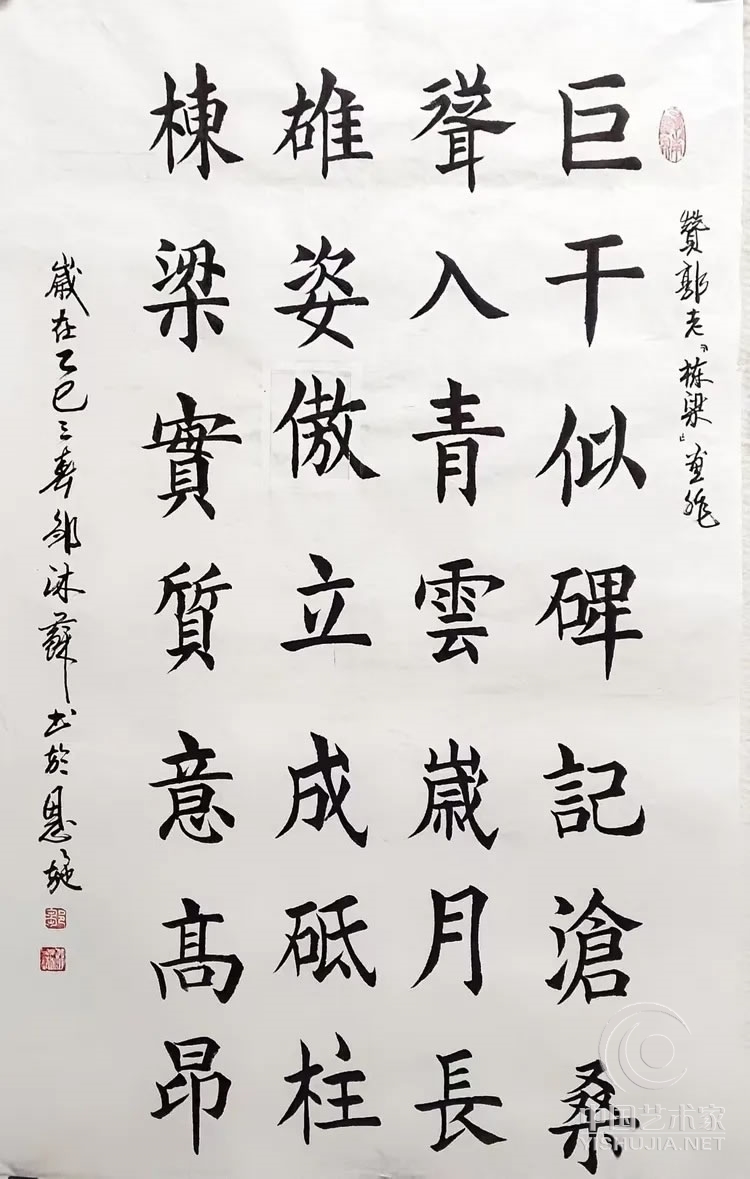 贊郭老『栋梁』画作
巨干似碑記滄桑
聳入青雲歲月長
雄姿傲立成砥柱
棟梁實質意髙昂
歲在乙巳三春邹沐蘇书於恩施
中国艺术家
YISHUJIA.NET